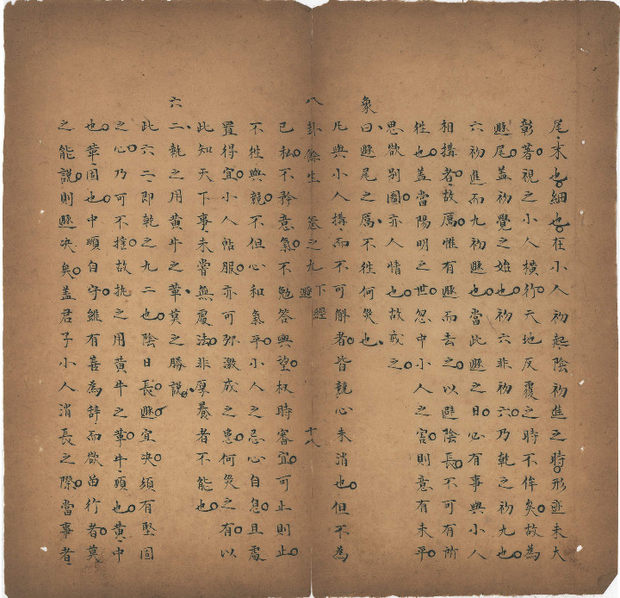 尾末也細也在小人初起陰初進之時形迹未大
彰著視之小人橫行天地反覆之時不侔矣故為
遯尾蓋初覺之雄也初六非初六乃乾之初九也
六初進而九初遯也當此遯之日必有事與小人
相搆者故厲惟有遯而去之以避陰長不可有所
徃也蓋當陽明之世忽中小人之害則意有未平
思欲別圖亦人情也故或之
象曰遯尾之厲不徃何災也
凡與小人搆而不可解者皆競心未消也但不為
八卦餘生 卷之九 下經 遯 十八
已私不矜意氣不勉答與望权時審宜可止則止
不徃與競不但心和氣平小人之忌心自怠且處
置得宜小人帖服亦可弥激成之患何災之有以
此知天下事未嘗無處法非厚養者不能也
六二執之用黄牛之革莫之勝說
此六二即乾之九二也陰日長遯宜决須有堅固
之心乃可不搖故執之用黄牛之革牛順也黄中
也革固也中順自守雖有喜為辭而欲苗行者莫
之能說則遯决矣蓋君子小人消長之際當事者